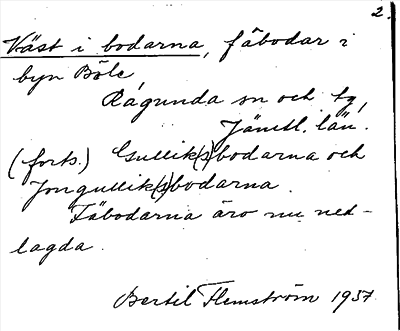 2.
Väst i bodarna, fäbodar i
byn Böle,
Ragunda sn och tg,
Jämtl. län.
(forts.) Gullik(s)bodarna och
Jongullik(s)bodarna.
Fäbodarna äro nu ned-
lagda.
Bertil Flemström 1937.